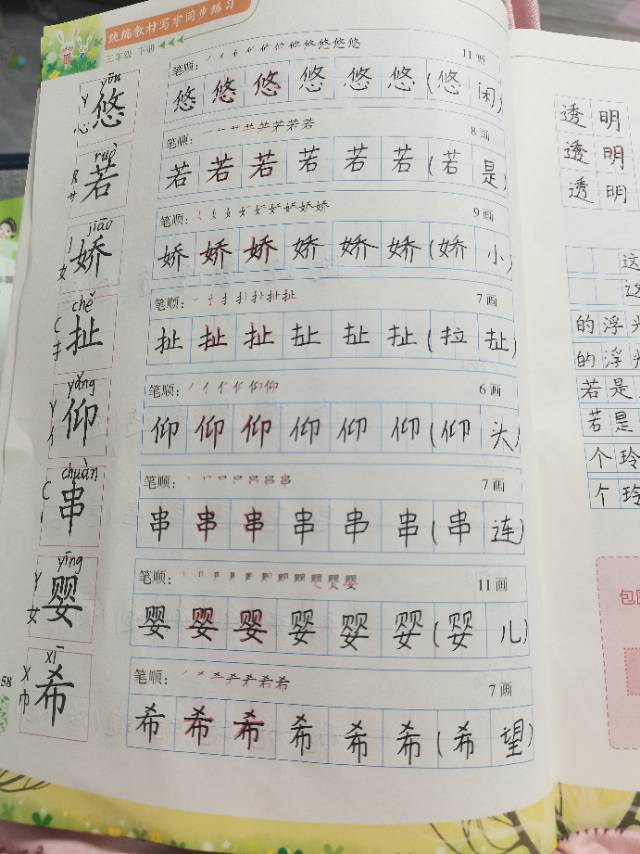 统编教材写字同步练习
三年级 下册
yōu
Y
心
悠
笔顺：
11画
悠 悠 悠 悠 悠 悠 (悠 闲)
ruò
R
艹
若
笔顺：
8画
若 若 若 若 若 若 (若 是)
jiāo
J
女
娇
笔顺：
9画
娇 娇 娇 娇 娇 娇 (娇 小)
chě
C
扌
扯
笔顺：
7画
扯 扯 扯 扯 扯 扯 (拉 扯)
yǎng
Y
亻
仰
笔顺：
6画
仰 仰 仰 仰 仰 仰 (仰 头)
chuàn
C
丨
串
笔顺：
7画
串 串 串 串 串 串 (串 连)
yīng
Y
女
婴
笔顺：
11画
婴 婴 婴 婴 婴 婴 (婴 儿)
xī
X
巾
希
笔顺：
7画
希 希 希 希 希 希 (希 望)
58
透 明
透 明
透 明
这
这
的 浮 光
的 浮 光
若 是
若 是
个 玲
个 玲